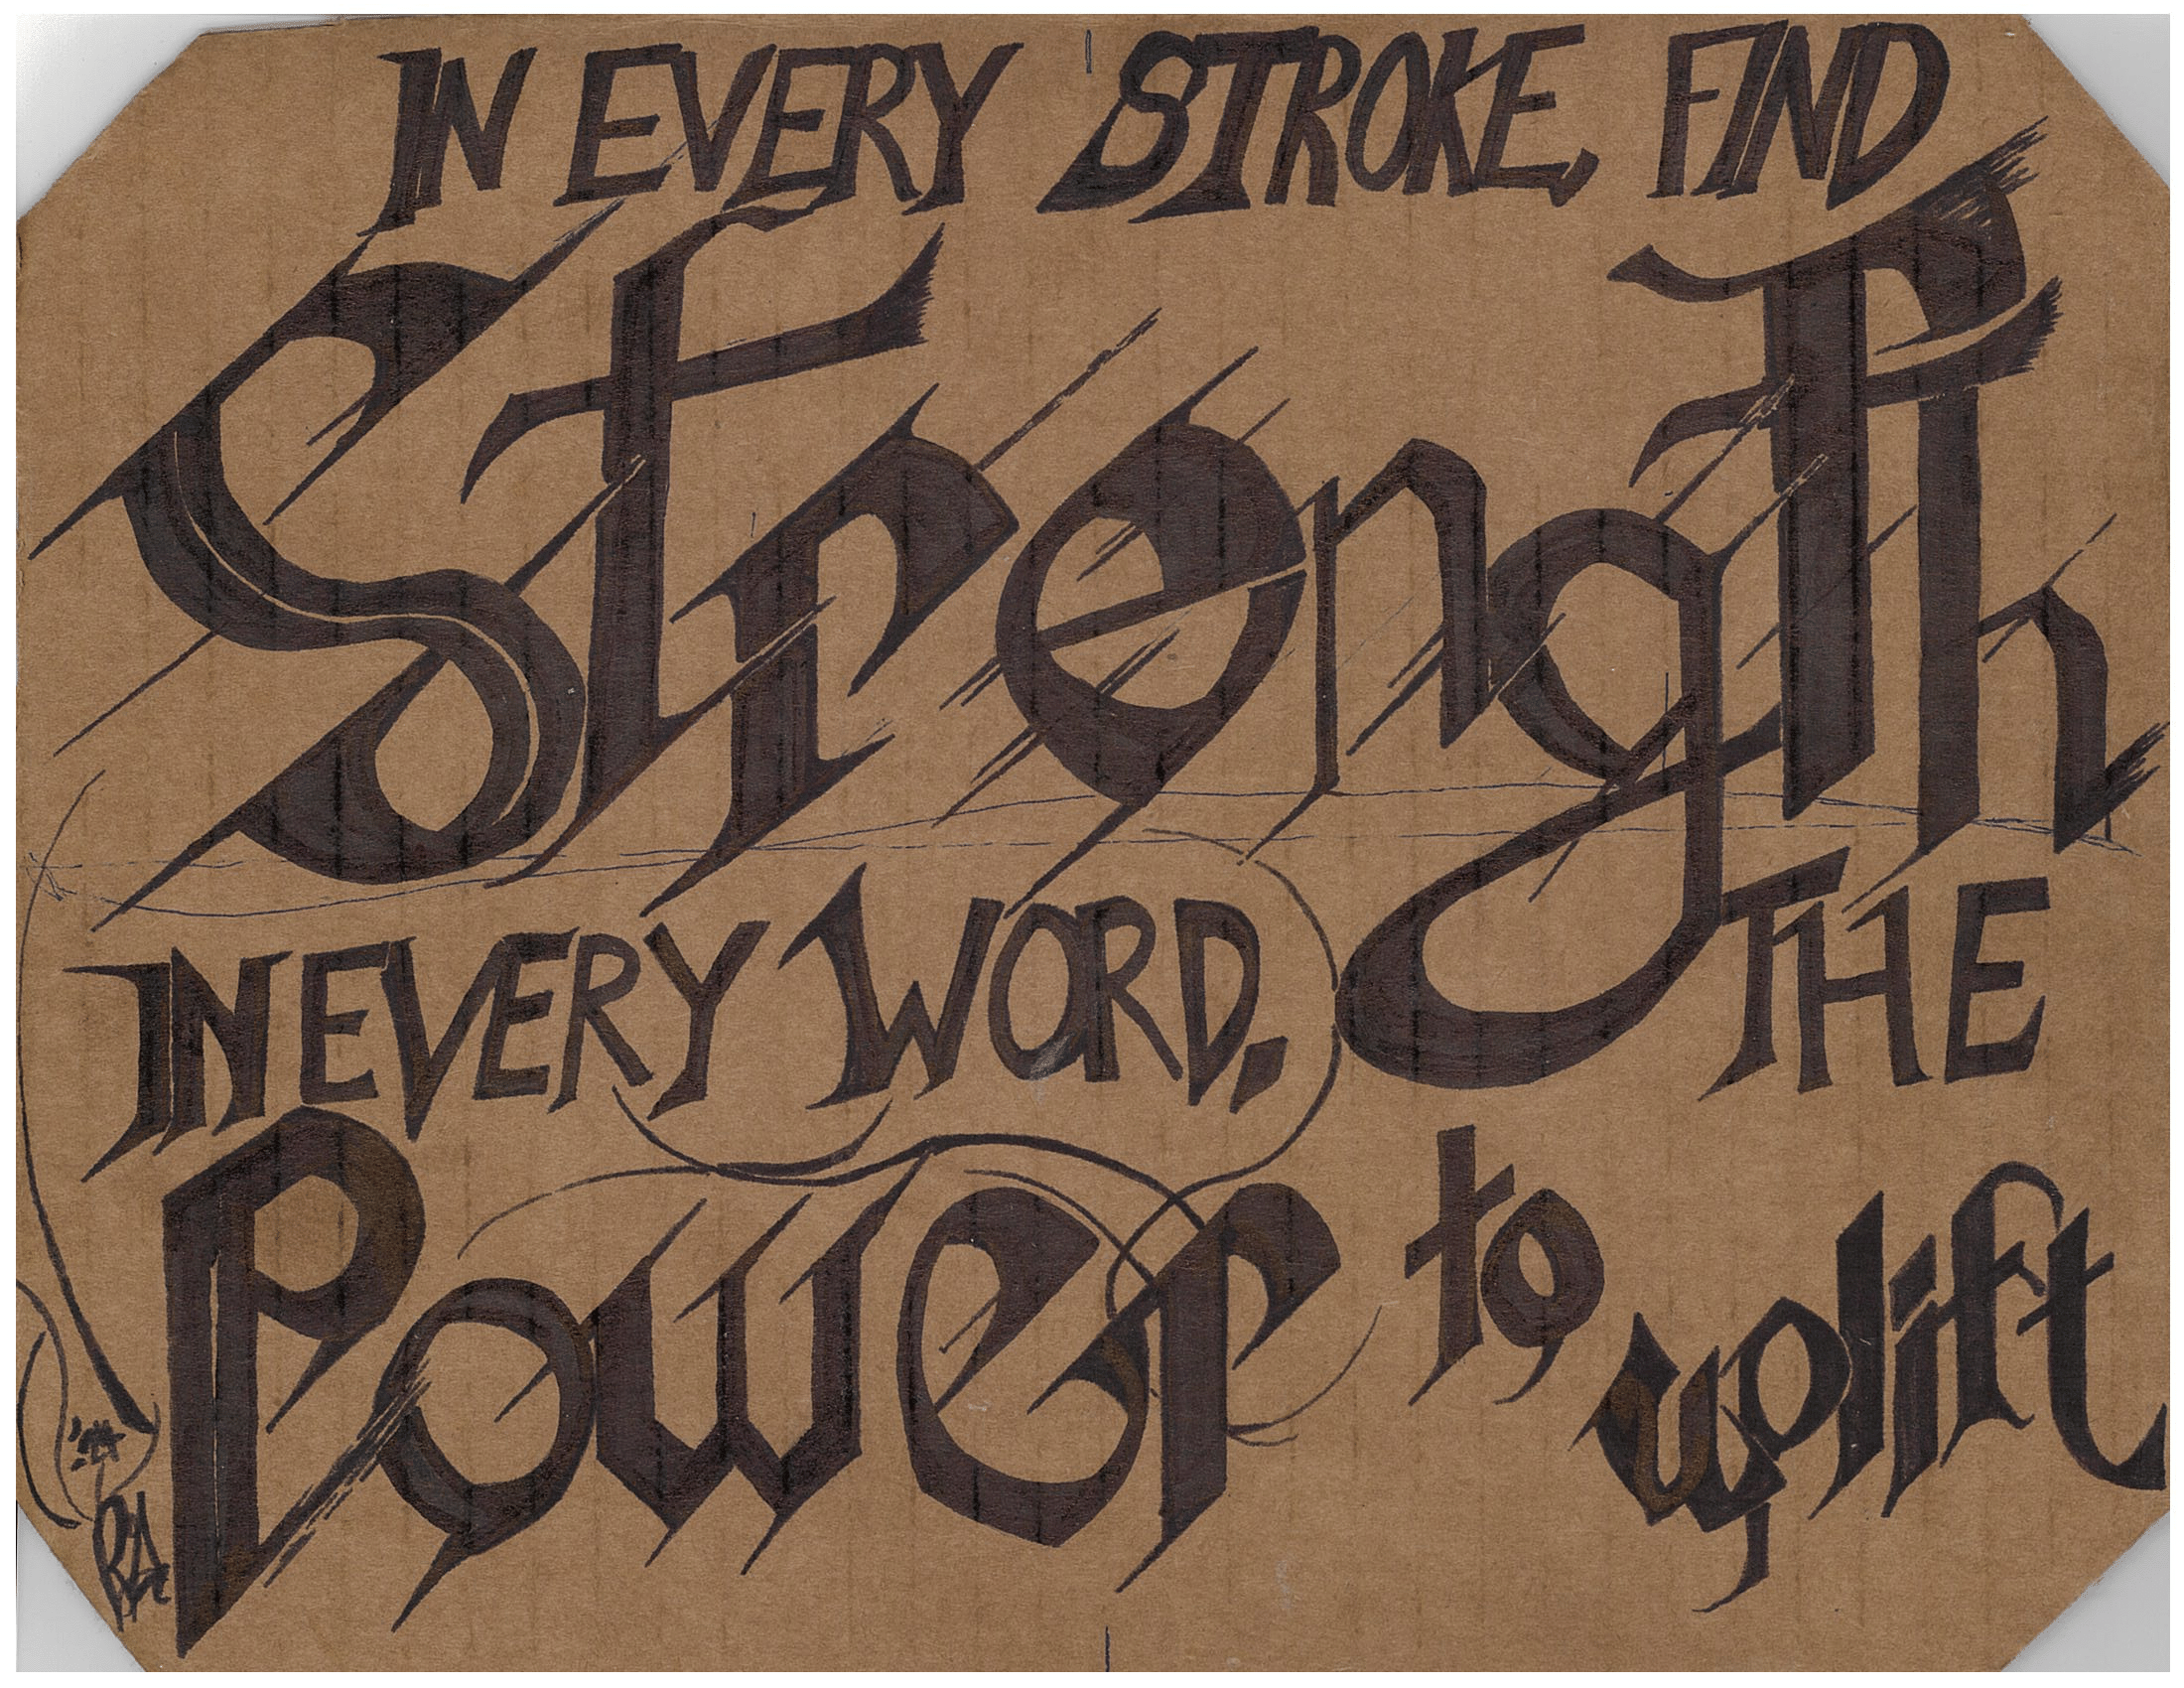 IN EVERY STROKE, FIND
Strength
IN EVERY WORD, THE
Power to uplift
'24
RA